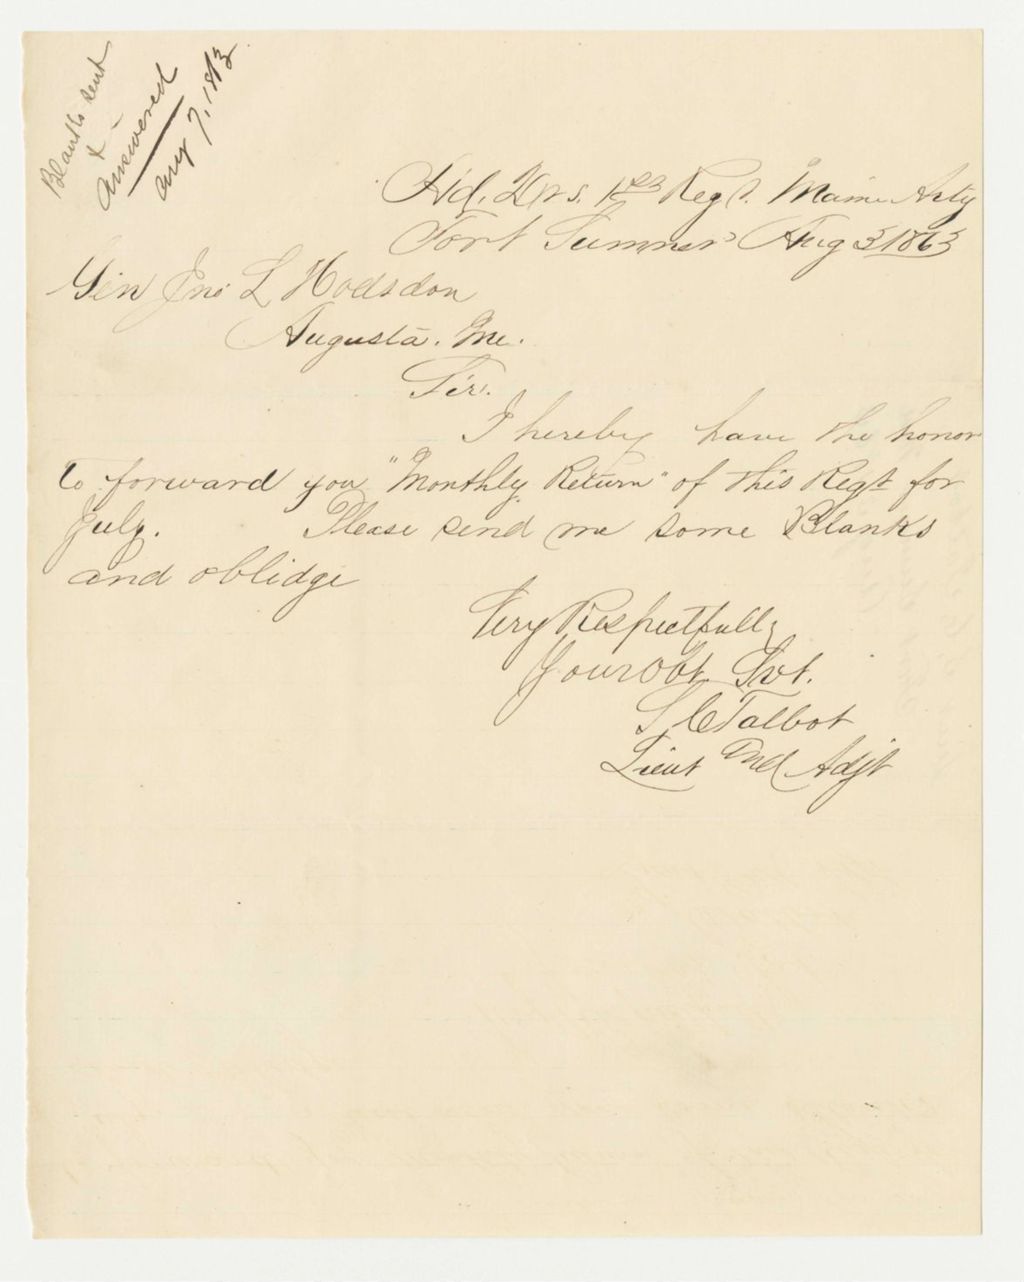 Blanks sent
&
answered
Aug 7, 1863
Hd. Qrs. 1st Regt. Maine Arty
Fort Sumner Aug 3 1863
Gen Jno L Hodsdon
Augusta. Me.
Sir.
I hereby have the honor
to forward you "Monthly Return" of this Regt for
July. Please send me some Blanks
and oblidge
Very Respectfully
Your Obt Svt.
S C Talbot
Lieut and Adjt